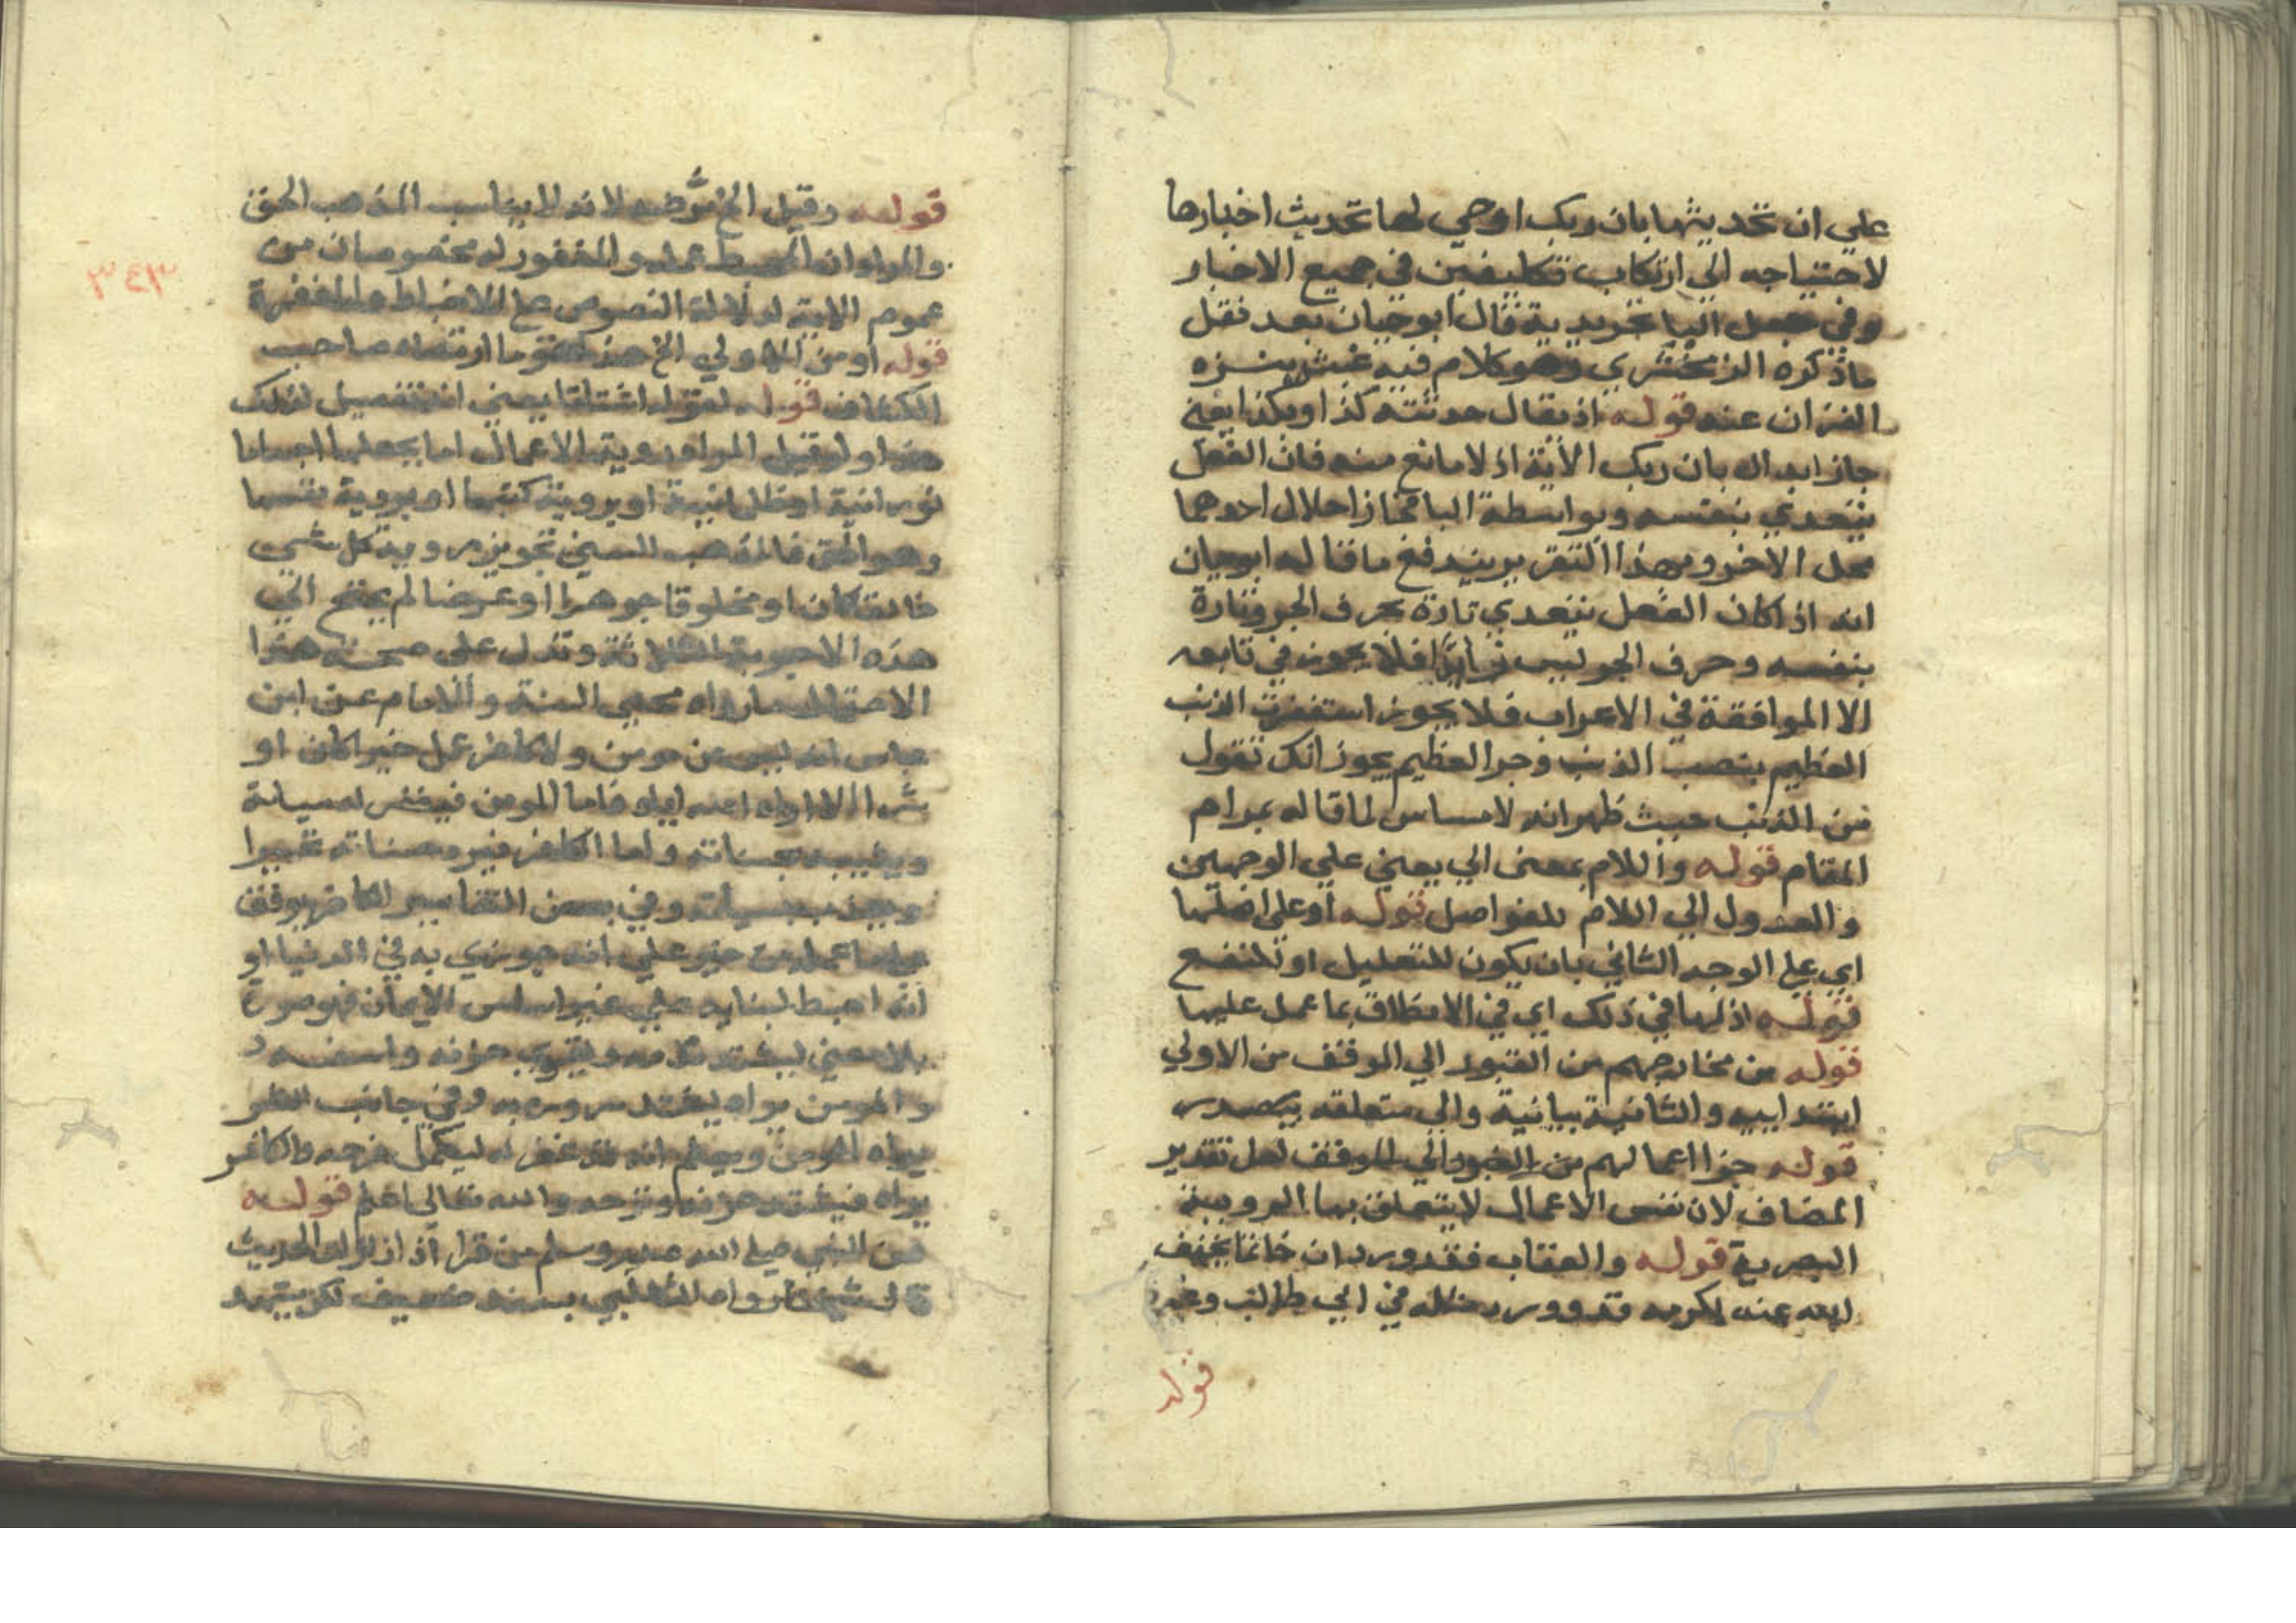 على ان تحديثها بان ربك اوحي لها تحديث اخبارها
لاحتياجه الى ارتكاب تكليفين في جميع الاخبار
وفي جعل البا تجريدية قال ابوحيان بعد نقل
ماذكره الزمخشري وهو كلام فيه عفش ينزه
القران عنه قوله اذ يقال حدثته كذا وبكذا يعني
جاز ابداله بان ربك الاية اذ لا مانع منه فان الفعل
يتعدي بنفسه وبواسطة البا فجاز احلال احدهما
محل الاخر وبهذا التقرير يندفع ما قاله ابوحيان
انه اذا كان الفعل يتعدي تارة بحرف الجر وتارة
بنفسه وحرف الجر ليس زايدا فلا يجوز في تابعه
الا الموافقة في الاعراب فلا يجوز استغفرت الذنب
العظيم بنصب الذنب وجر العظيم بجواز انك تقول
من الذنب حيث ظهر انه لا مساس لما قاله بمرام
المقام قوله واللام بمعنى الي يعني علي الوجهين
والعدول الي اللام للفواصل قوله او على اصلها
اي على الوجه الثاني بان يكون للتعليل او للنفع
قوله اذ لها في ذلك اي في الانطلاق بما عمل عليها
قوله من مخارجهم من القبور الي الموقف من الاولي
ابتدائيه والثانية بيانية والي متعلقه بيصدر
قوله جزا اعمالهم من القبور الي الموقف لعل تقدير
المضاف لان نفس الاعمال لا يتعلق بها الرويية
البصرية قوله والعقاب فقد ورد ان حاتما يخفف
الله عنه لكرمه قد وورد مثله في ابي طالب وغيره
قوله
قوله وقيل الخ مرضه لانه لا يناسب المذهب الحق
والمراد ان المحبط عمله والمغفور له مخصوصان من
عموم الاية لدلالة النصوص على الاحباط والمغفرة
قوله او من الاولي الخ هذا هو ما ارتضاه صاحب
الكشاف قوله لقوله اشتاتا يعني انه تفصيل لذلك
هذا وقيل المراد روية الاعمال اما بجعلها اجساما
نورانية او ظلمانية او بروية كتبها او بروية نفسها
وهو الحق فالمذهب السني تجويز روية كل شي
خالقا كان او مخلوقا جوهرا او عرضا لم يحتج الي
هذه الاجوبة الثلاثة وتدل على صحة هذا
الاحتمال ما رواه محيي السنة والامام عن ابن
عباس انه ليس من مومن ولا كافر عمل خيرا كان او
شرا الا اراه الله اياه فاما المومن فيغفر له سيياته
ويثيبه بحسناته واما الكافر فيرد حسناته تحسرا
ويعذب بسيياته وفي بعض التفاسير الكافر يوقف
على ما عمله من خير على انه جوزي به في الدنيا او
انه احبط لبنايه على غير اساس الايمان فهو صورة
بلا معنى ليشتد ندمه ويقوي حزنه واسفه
والمومن يراه ليشتد سروره به وفي جانب الشر
يراه المومن ويعلم انه قد غفر له ليكمل فرحه والكافر
يراه فيشتد حزنه وترحه والله تعالى اعلم قوله
عن النبي صلى الله عليه وسلم من قرا اذا زلزلت الحديث
قال شيخنا رواه الثعلبي بسند ضعيف لكن يشهد
٣٤٣